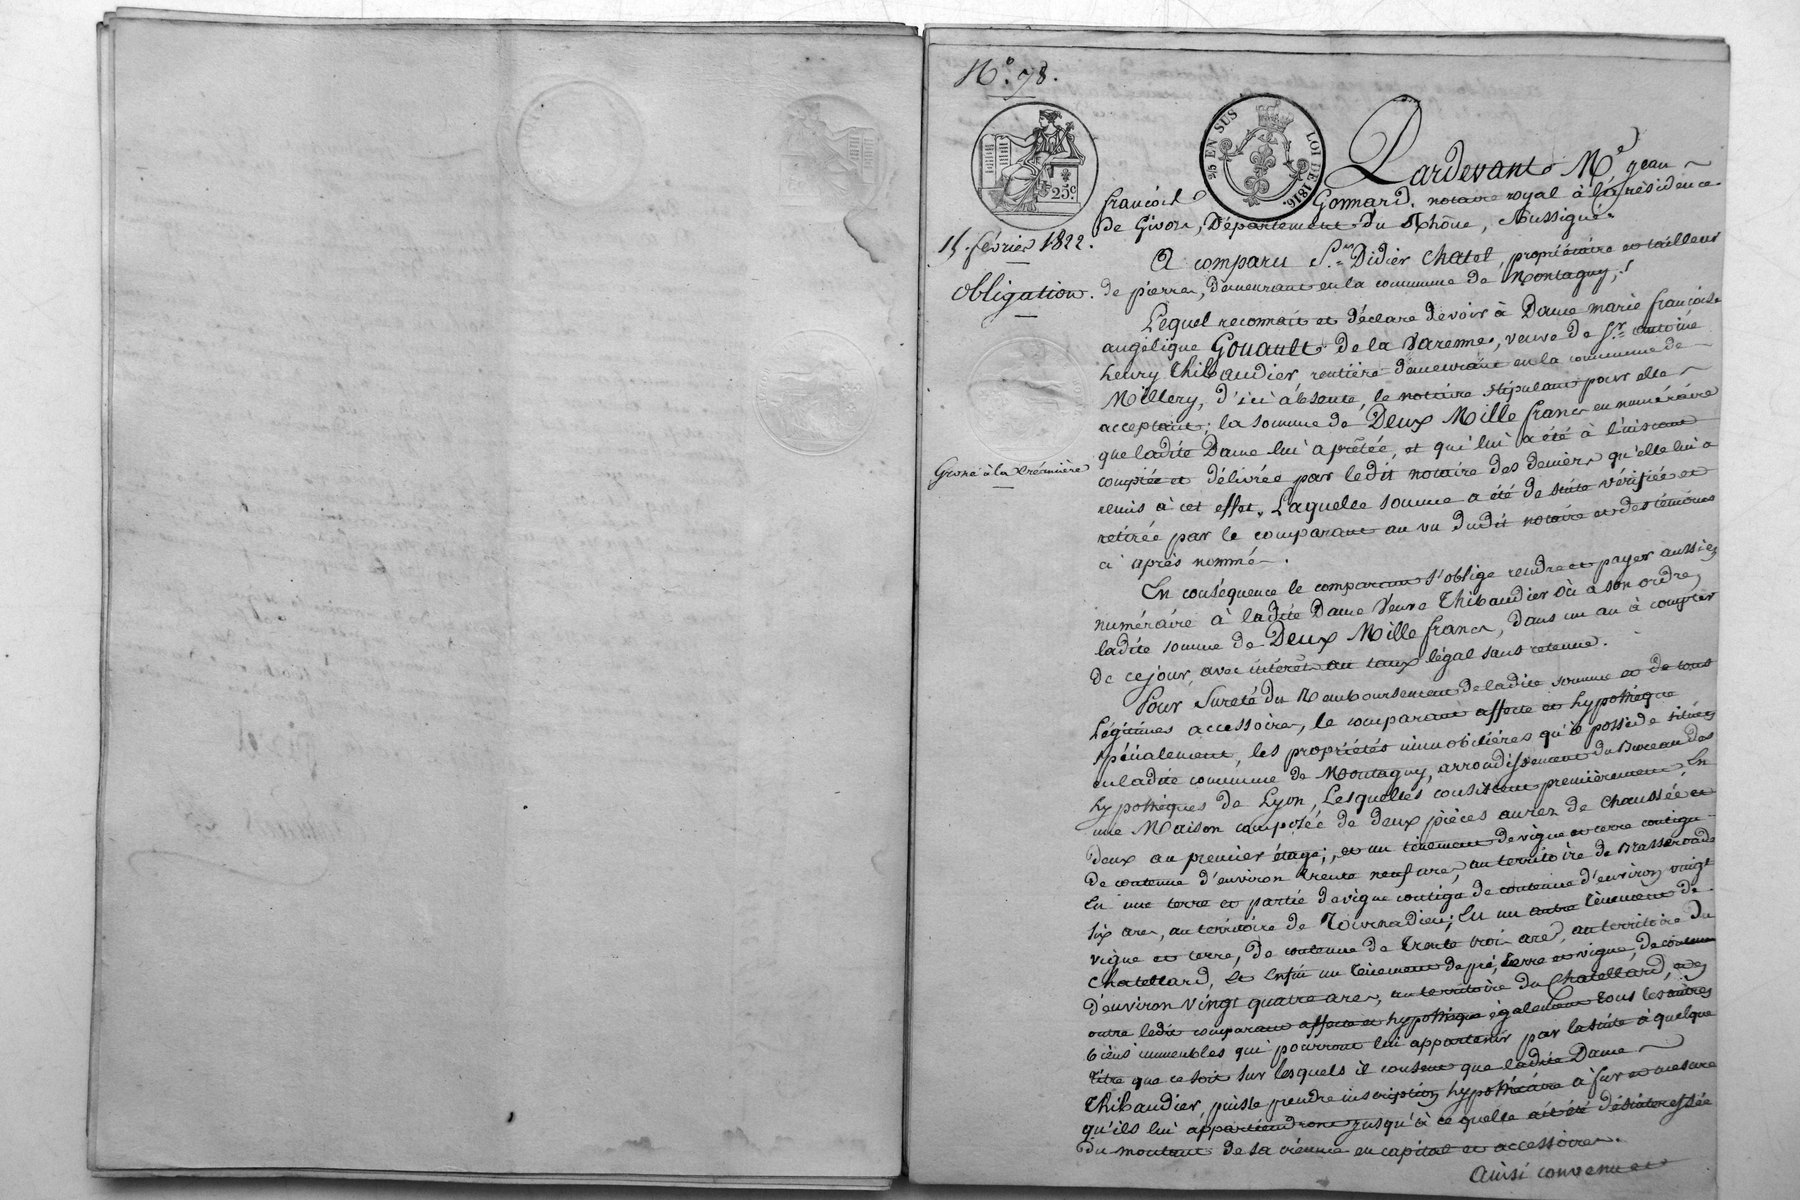 N.° 78.
25.c
25 EN SUS LOI DE 1816.
Pardevant M.e Jean
françois Gonnard, notaire royal à la résidence
de Givors, Département du Rhône, soussigné.
15 février 1822.
A comparu S.r Didier Chatel, propriétaire et tailleur
Obligation.
de pierres, demeurant en la commune de Montagny,
Lequel reconnait et déclare devoir à Dame marie françoise
angélique Gouault de la Varenne, veuve de S.r antoine
henry Thibaudier, rentière demeurant en la commune de
Millery, d'ici absente, le notaire stipulant pour elle
acceptant; la somme de Deux Mille francs en numéraire
que ladite Dame lui a prêtée, et qui lui a été à l'instant
Grosse à la Créancière
comptée et délivrée par ledit notaire des deniers qu'elle lui a
remis à cet effet. Laquelle somme a été de suite vérifiée et
retirée par le comparant au vu dudit notaire et des témoins
ci après nommés.
En conséquence le comparant s'oblige rendre et payer aussi en
numéraire à ladite Dame Veuve Thibaudier où à son ordre,
ladite somme de Deux Mille francs, dans un an à compter
de ce jour, avec intérêt au taux légal sans retenue.
Pour Sureté du Remboursement de ladite somme et de tous
Légitimes accessoires, le comparant affecte et hypothèque
spécialement, les propriétés immobilières qu'il possède situées
en ladite commune de Montagny, arrondissement du Bureau des
hypothèques de Lyon, Lesquelles consistent premièrement, En
une Maison composée de deux pièces au rez de chaussée et
deux au premier étage; et un tènement de vigne et terre contigu
de contenue d'environ trente neuf ares, au territoire de
En une terre et partie de vigne contigu de contenue d'environ vingt
six ares, au territoire de Tournadieu; En un autre tènement de
vigne et terre, de contenue de Trente trois ares, au territoire du
Chatellard, Et Enfin un Tènement de pré, terre et vigne, de contenue
d'environ vingt quatre ares, au territoire du Chatellard, et en
outre ledit comparant affecte et hypothèque également tous les autres
biens immeubles qui pourront lui appartenir par la suite à quelque
titre que ce soit sur lesquels il consent que ladite Dame
Thibaudier, puisse prendre inscription hypothécaire à fur et mesure
qu'ils lui appartiendront jusqu'à ce quelle ait été désintéressée
du montant de sa créance en capital et accessoires.
Ainsi convenu et